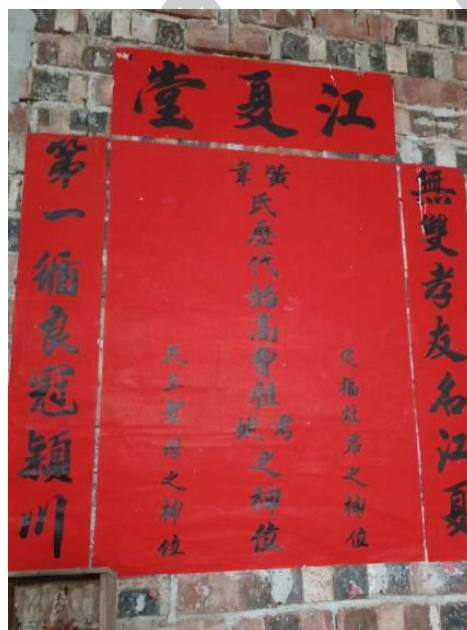 江夏堂
無雙孝友名江夏
定福灶君之神位
黃韋氏歷代始高曾祖考妣之神位
天上聖母之神位
第一循良冠潁川